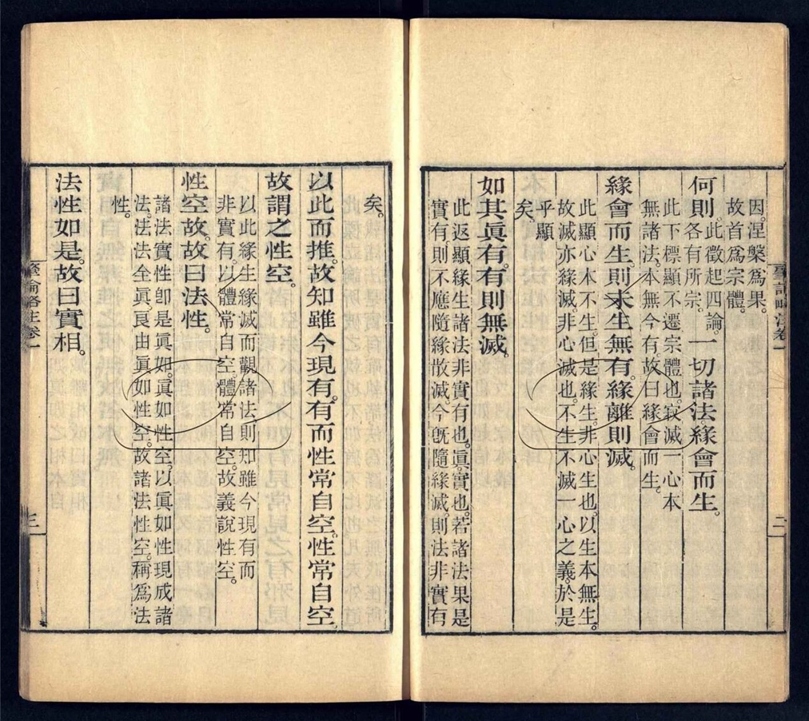 肇論略注卷一
二
因。涅槃爲果。
故首爲宗體。
何則。此徵起四論。
各有所宗。
一切諸法緣會而生。
此下標顯不遷宗體也。寂滅一心本
無諸法。本無今有。故曰緣會而生。
緣會而生則未生無有。緣離則滅。
此顯心本不生。但是緣生。非心生也。以生本無生。
故滅亦緣滅。非心滅也。不生不滅一心之義。於是
乎顯
矣。
如其眞有。有則無滅。
此返顯緣生諸法非實有也。眞。實也。若諸法果是
實有則不應隨緣散滅。今旣隨緣滅。則法非實有
矣。
以此而推。故知雖今現有。有而性常自空。性常自空。
故謂之性空。
以此緣生緣滅而觀諸法則知雖今現有而
非實有。以體常自空。體常自空。故義說性空。
性空故故曰法性。
諸法實性卽是眞如。眞如性空。以眞如性現成諸
法。法法全眞。良由眞如性空。故諸法性空。稱爲法
性。
法性如是。故曰實相。
肇論略注卷一
三